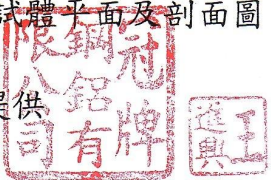 試體平面及剖面圖
提供
冠牌
鋼鋁有
限公司
王
進興